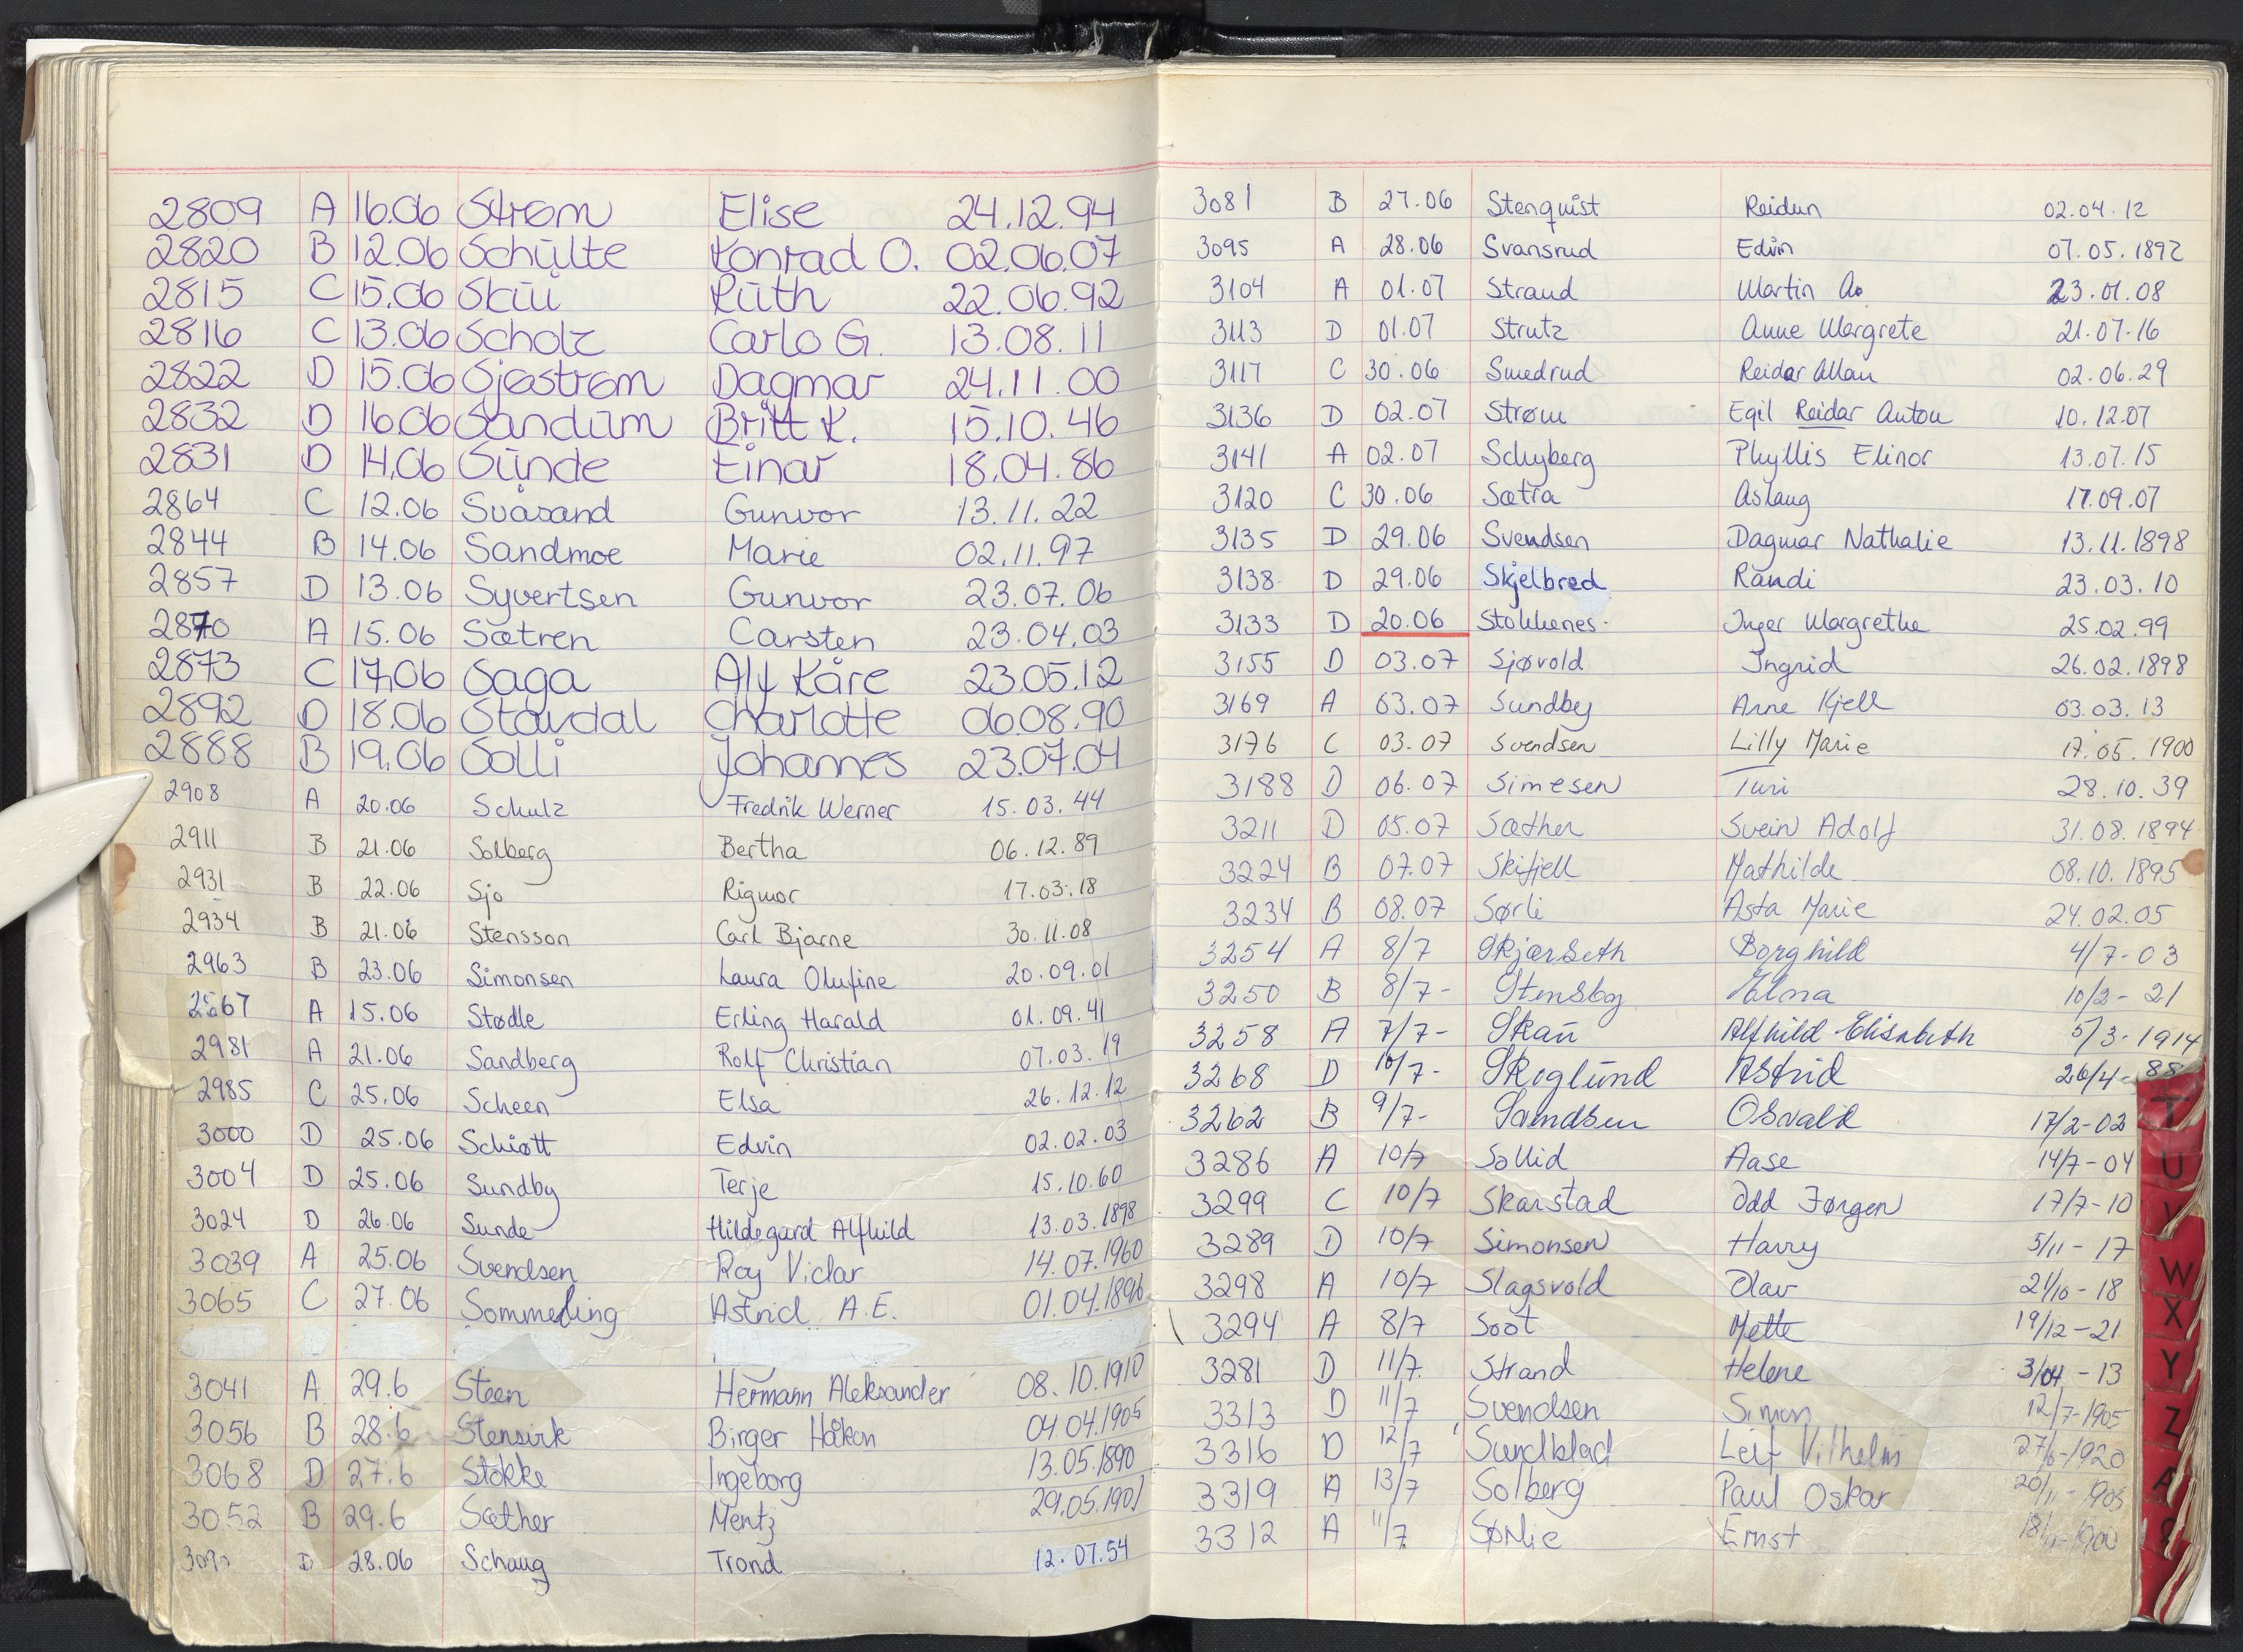 2809 A 16.06 Strøm Elise 24.12.94
2820 B 12.06 Schülte Konrad O. 02.06.07
2815 C 15.06 Skūi Rūth 22.06.92
2816 C 13.06 Scholz Carlo G. 13.08.11
2822 D 15.06 Sjøstrøm Dagmar 24.11.00
2832 D 16.06 Sandūm Britt K. 15.10.46
2831 D 14.06 Sūnde Einar 18.04.86
2864 C 12.06 Svåsand Gunvor 13.11.22
2844 B 14.06 Sandmoe Marie 02.11.97
2857 D 13.06 Syvertsen Gunvor 23.07.06
2870 A 15.06 Sætren Carsten 23.04.03
2873 C 17.06 Saga Alf Kåre 23.05.12
2892 D 18.06 Stavdal Charlotte 06.08.90
2888 B 19.06 Solli Johannes 23.07.04
2908 A 20.06 Schulz Fredrik Werner 15.03.44
2911 B 21.06 Solberg Bertha 06.12.89
2931 B 22.06 Sjo Rigmor 17.03.18
2934 B 21.06 Stensson Carl Bjarne 30.11.08
2963 B 23.06 Simonsen Laura Olufine 20.09.01
2567 A 15.06 Stødle Erling Harald 01.09.41
2981 A 21.06 Sandberg Rolf Christian 07.03.19
2985 C 25.06 Scheen Elsa 26.12.12
3000 D 25.06 Schiøtt Edvin 02.02.03
3004 D 25.06 Sundby Terje 15.10.60
3024 D 26.06 Sunde Hildegard Alfhild 13.03.1898
3039 A 25.06 Svendsen Roy Vidar 14.07.1960
3065 C 27.06 Sommerling Astrid A.E. 01.04.1896
3041 A 29.6 Steen Hermann Aleksander 08.10.1910
3056 B 28.6 Stensvik Birger Håkon 04.04.1905
3068 D 27.6 Stokke Ingeborg 13.05.1890
3052 B 29.6 Sæther Mentz 29.05.1901
D 28.06 Schaug Trond 12.07.54
3081 B 27.06 Stenquist Reidun 02.04.12
3095 A 28.06 Svansrud Edvin 07.05.1892
3104 A 01.07 Strand Martin A. 23.01.08
3113 D 01.07 Strutz Anne Margrete 21.07.16
3117 C 30.06 Smedrud Reidar Allan 02.06.29
3136 D 02.07 Strøm Egil Reidar Anton 10.12.07
3141 A 02.07 Schyberg Phyllis Elinor 13.07.15
3120 C 30.06 Sætra Aslaug 17.09.07
3135 D 29.06 Svendsen Dagmar Nathalie 13.11.1898
3138 D 29.06 Skjelbred Randi 23.03.10
3133 D 20.06 Stokkenes Inger Margrethe 25.02.99
3155 D 03.07 Sjøvold Ingrid 26.02.1898
3169 A 03.07 Sundby Arne Kjell 03.03.13
3176 C 03.07 Svendsen Lilly Marie 17.05.1900
3188 D 06.07 Simesen Turi 28.10.39
3211 D 05.07 Sæther Svein Adolf 31.08.1894
3224 B 07.07 Skifjell Mathilde 08.10.1895
3234 B 08.07 Sørli Asta Marie 24.02.05
3254 A 8/7 Skjærseth Borghild 4/7-03
3250 B 8/7- Stensby 10/2-21
3258 A 7/7- Skaū Alfhild Elisabeth 5/3-1914
3268 D 10/7- Skoglūnd Astrid 26/4-88
3262 B 9/7- Osvald 17/2-02
3286 A 10/7 Sollid Aase 14/7-04
3299 C 10/7 Skarstad Odd Jørgen 17/7-10
3289 D 10/7 Simonsen Harry 5/11-17
3298 A 10/7 Slagsvold Olav 21/10-18
3294 A 8/7 Soot Mette 19/12-21
3281 D 11/7 Strand Helene 3/04-13
3313 D 11/7 Svendsen Simon 12/7-1905
3316 D 12/7 Sundblad Leif Vilhelm 27/6-1920
3319 A 13/7 Solberg Paul Oskar
3312 A 11/7 Sørlie Ernst
T
U
V
W
X
Y
Z